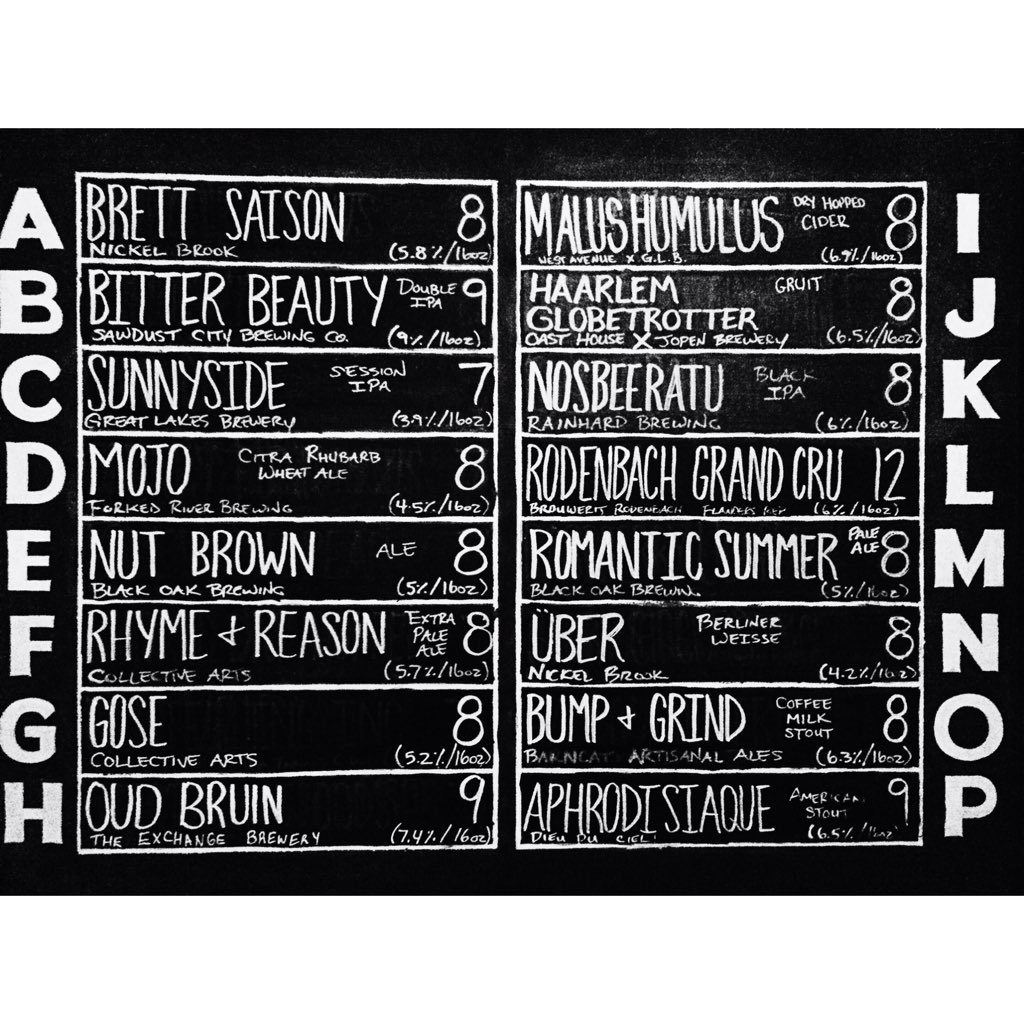 A
BRETT SAISON 8
NICKEL BROOK (5.8%/16oz)
B
BITTER BEAUTY DOUBLE IPA 9
SAWDUST CITY BREWING CO. (9%/16oz)
C
SUNNYSIDE SESSION IPA 7
GREAT LAKES BREWERY (3.9%/16oz)
D
MOJO CITRA RHUBARB WHEAT ALE 8
FORKED RIVER BREWING (4.5%/16oz)
E
NUT BROWN ALE 8
BLACK OAK BREWING (5%/16oz)
F
RHYME + REASON EXTRA PALE ALE 8
COLLECTIVE ARTS (5.7%/16oz)
G
GOSE 8
COLLECTIVE ARTS (5.2%/16oz)
H
OUD BRUIN 9
THE EXCHANGE BREWERY (7.4%/16oz)
I
MALUS HUMULUS DRY HOPPED CIDER 8
WEST AVENUE X G.L.B. (6.9%/16oz)
J
HAARLEM GRUIT 8
GLOBETROTTER
OAST HOUSE X JOPEN BREWERY (6.5%/16oz)
K
NOSBEERATU BLACK IPA 8
RAINHARD BREWING (6%/16oz)
L
RODENBACH GRAND CRU 12
RODENBACH FLANDERS RED (6%/16oz)
M
ROMANTIC SUMMER PALE ALE 8
BLACK OAK BREWING (5%/16oz)
N
ÜBER BERLINER WEISSE 8
NICKEL BROOK (4.2%/16oz)
O
BUMP + GRIND COFFEE MILK STOUT 8
BARNCAT ARTISANAL ALES (6.3%/16oz)
P
APHRODISIAQUE AMERICAN STOUT 9
DIEU DU CIEL! (6.5%/16oz)